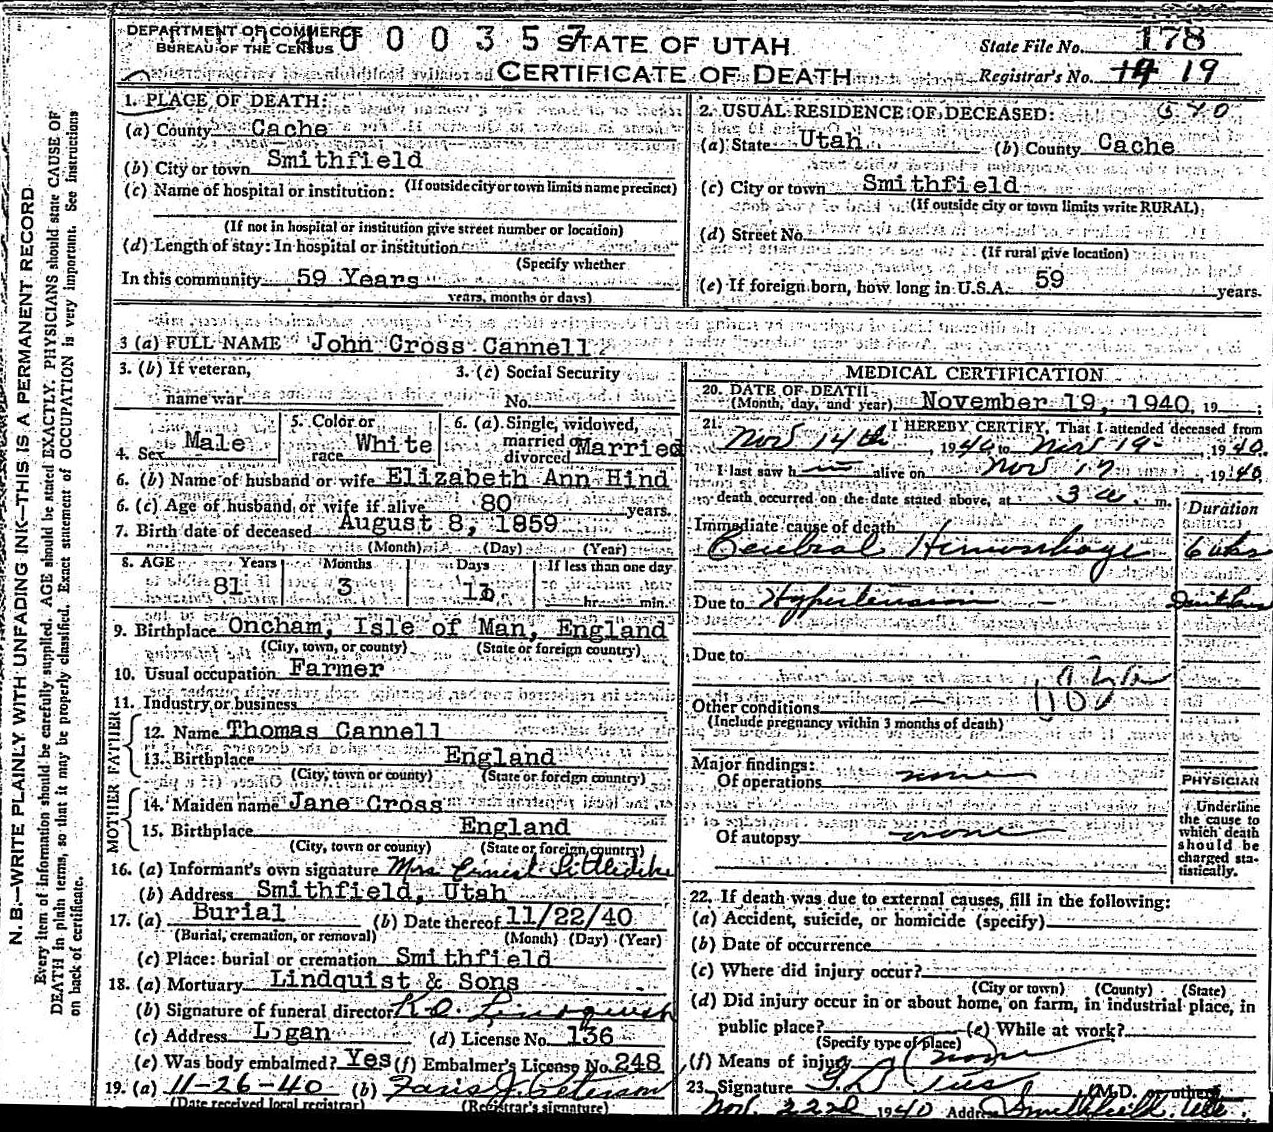 DEPARTMENT OF COMMERCE
BUREAU OF THE CENSUS
STATE OF UTAH
CERTIFICATE OF DEATH
State File No. 178
Registrar's No. 19
1. PLACE OF DEATH:
(a) County Cache
(b) City or town Smithfield
(If outside city or town limits name precinct)
(c) Name of hospital or institution:
(If not in hospital or institution give street number or location)
(d) Length of stay: In hospital or institution
(Specify whether
In this community 59 Years
years, months or days)
2. USUAL RESIDENCE OF DECEASED:
(a) State Utah (b) County Cache
(c) City or town Smithfield
(If outside city or town limits write RURAL)
(d) Street No.
(If rural give location)
(e) If foreign born, how long in U.S.A. 59 years.
3 (a) FULL NAME John Cross Cannell
3. (b) If veteran, name war
3. (c) Social Security No.
4. Sex Male
5. Color or race White
6. (a) Single, widowed, married or divorced Married
6. (b) Name of husband or wife Elizabeth Ann Hind
6. (c) Age of husband or wife if alive 80 years.
7. Birth date of deceased August 8, 1859
(Month) (Day) (Year)
8. AGE Years Months Days If less than one day
81 3 11 hr. min.
9. Birthplace Oncham, Isle of Man, England
(City, town, or county) (State or foreign country)
10. Usual occupation Farmer
11. Industry or business
FATHER
12. Name Thomas Cannell
13. Birthplace England
(City, town or county) (State or foreign country)
MOTHER
14. Maiden name Jane Cross
15. Birthplace England
(City, town or county) (State or foreign country)
16. (a) Informant's own signature Mrs Ernest Littledike
(b) Address Smithfield, Utah
17. (a) Burial (b) Date thereof 11/22/40
(Burial, cremation, or removal) (Month) (Day) (Year)
(c) Place: burial or cremation Smithfield
18. (a) Mortuary Lindquist & Sons
(b) Signature of funeral director Lindquist
(c) Address Logan (d) License No. 136
(e) Was body embalmed? Yes (f) Embalmer's License No. 248
19. (a) 11-26-40 (b) Peterson
(Date received local registrar) (Registrar's signature)
MEDICAL CERTIFICATION
20. DATE OF DEATH
(Month, day, and year) November 19, 1940, 19 ;
21. I HEREBY CERTIFY, That I attended deceased from
Nov 14th, 1940 to Nov 19-, 1940.
I last saw him alive on Nov 19, 1940
death occurred on the date stated above, at 3 a. m.
Duration
Immediate cause of death
Cerebral Hemorrhage
Due to Hypertension
Due to
Other conditions
(Include pregnancy within 3 months of death)
Major findings:
Of operations none
Of autopsy none
PHYSICIAN
Underline
the cause to
which death
should be
charged sta-
tistically.
22. If death was due to external causes, fill in the following:
(a) Accident, suicide, or homicide (specify)
(b) Date of occurrence
(c) Where did injury occur?
(City or town) (County) (State)
(d) Did injury occur in or about home, on farm, in industrial place, in
public place? (e) While at work?
(Specify type of place)
(f) Means of injury none
23. Signature (M.D. or other)
Nov. 22nd 1940 Address Smithfield
N. B.—WRITE PLAINLY WITH UNFADING INK—THIS IS A PERMANENT RECORD
Every item of information should be carefully supplied. AGE should be stated EXACTLY. PHYSICIANS should state CAUSE OF
DEATH in plain terms, so that it may be properly classified. Exact statement of OCCUPATION is very important. See instructions
on back of certificate.